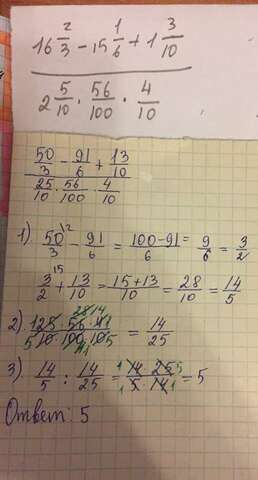 16 2/3 - 15 1/6 + 1 3/10
2 5/10 · 56/100 · 4/10
50/3 - 91/6 + 13/10
25/10 · 56/100 · 4/10
1) 50/3 - 91/6 = 100-91/6 = 9/6 = 3/2
3/2 + 13/10 = 15+13/10 = 28/10 = 14/5
2) 125 · 56 · 41/10 · 100 · 10 = 14/25
3) 14/5 : 14/25 = 14 · 25/5 · 14 = 5
Ответ: 5